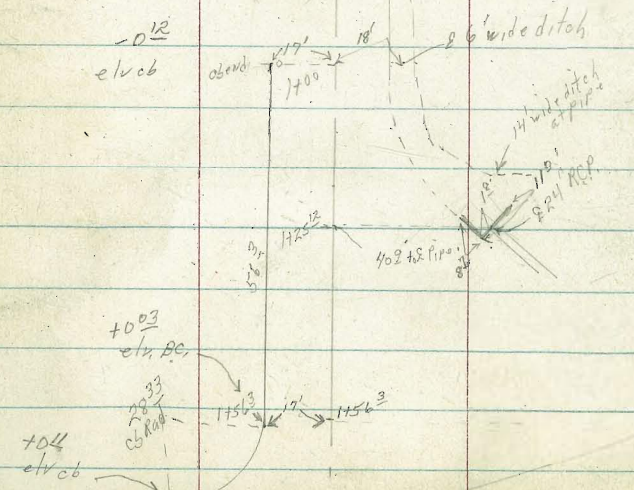 -0 12
elv cb
cb end
17'
18'
℄ 6' wide ditch
1+00
14' wide ditch
at pipe
℄ 24" RCP
1+25 12
40 2' to ℄ Pipe
56 3
+0 03
elv. BC.
28 33
cb Rad
1+56 3
17'
1+56 3
+04
elv cb